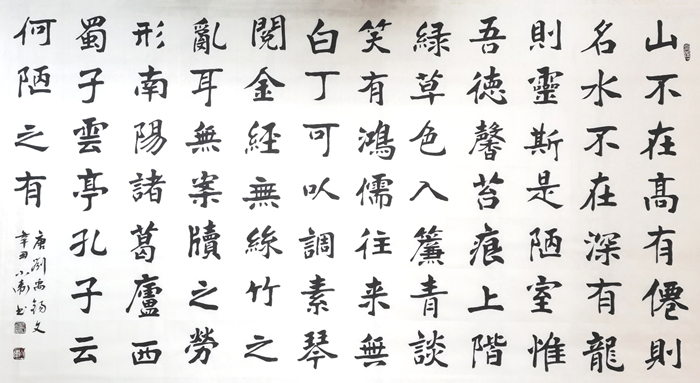 山不在高有僊則
名水不在深有龍
則靈斯是陋室惟
吾德馨苔痕上階
緑草色入簾青談
笑有鴻儒往来無
白丁可以調素琴
閲金經無絲竹之
亂耳無案牘之勞
形南陽諸葛廬西
蜀子雲亭孔子云
何陋之有
唐劉禹錫文
辛丑小